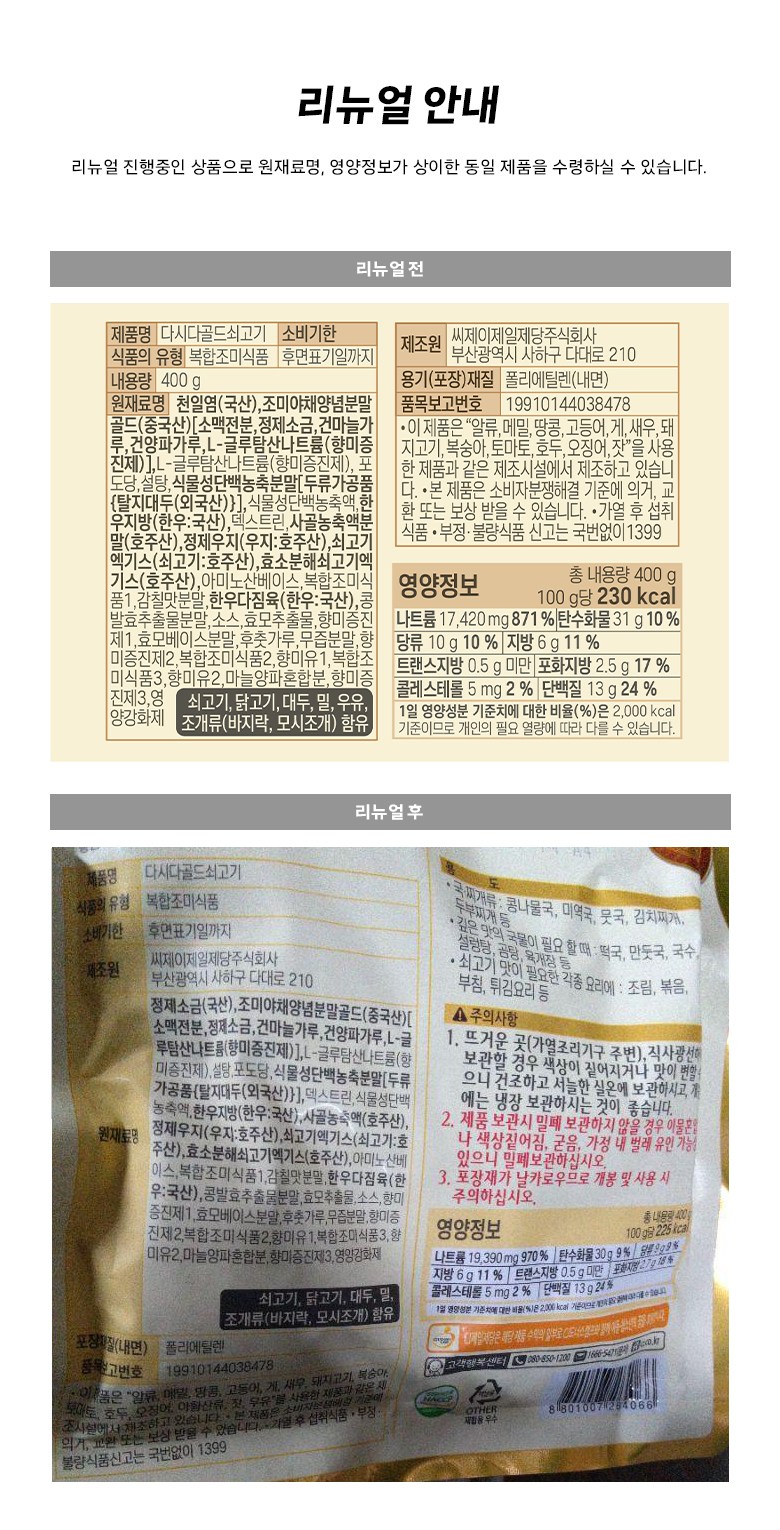 리뉴얼 안내
리뉴얼 진행중인 상품으로 원재료명, 영양정보가 상이한 동일 제품을 수령하실 수 있습니다.
리뉴얼 전
제품명 다시다골드쇠고기 소비기한
식품의 유형 복합조미식품 후면표기일까지
내용량 400 g
원재료명 천일염(국산),조미야채양념분말
골드(중국산)[소맥전분,정제소금,건마늘가
루,건양파가루,L-글루탐산나트륨(향미증
진제)],L-글루탐산나트륨(향미증진제), 포
도당,설탕,식물성단백농축분말[두류가공품
{탈지대두(외국산)}],식물성단백농축액,한
우지방(한우:국산),덱스트린,사골농축액분
말(호주산),정제우지(우지:호주산),쇠고기
엑기스(쇠고기:호주산),효소분해쇠고기엑
기스(호주산),아미노산베이스,복합조미식
품1,감칠맛분말,한우다짐육(한우:국산),콩
발효추출물분말,소스,효모추출물,향미증진
제1,효모베이스분말,후춧가루,무즙분말,향
미증진제2,복합조미식품2,향미유1,복합조
미식품3,향미유2,마늘양파혼합분,향미증
진제3,영
양강화제
쇠고기, 닭고기, 대두, 밀, 우유,
조개류(바지락, 모시조개) 함유
제조원 씨제이제일제당주식회사
부산광역시 사하구 다대로 210
용기(포장)재질 폴리에틸렌(내면)
품목보고번호 19910144038478
•이 제품은 “알류,메밀,땅콩,고등어,게,새우,돼
지고기, 복숭아,토마토,호두,오징어,잣”을 사용
한 제품과 같은 제조시설에서 제조하고 있습니
다. •본 제품은 소비자분쟁해결 기준에 의거, 교
환 또는 보상 받을 수 있습니다. •가열 후 섭취
식품 •부정·불량식품 신고는 국번없이1399
영양정보 총 내용량 400 g
100 g당 230 kcal
나트륨 17,420 mg 871 % 탄수화물 31 g 10 %
당류 10 g 10 % 지방 6 g 11 %
트랜스지방 0.5 g 미만 포화지방 2.5 g 17 %
콜레스테롤 5 mg 2 % 단백질 13 g 24 %
1일 영양성분 기준치에 대한 비율(%)은 2,000 kcal
기준이므로 개인의 필요 열량에 따라 다를 수 있습니다.
리뉴얼 후
제품명 다시다골드쇠고기
식품의 유형 복합조미식품
소비기한 후면표기일까지
제조원 씨제이제일제당주식회사
부산광역시 사하구 다대로 210
원재료명
정제소금(국산),조미야채양념분말골드(중국산)[
소맥전분,정제소금,건마늘가루,건양파가루,L-글
루탐산나트륨(향미증진제)],L-글루탐산나트륨(향
미증진제),설탕,포도당,식물성단백농축분말[두류
가공품{탈지대두(외국산)}],덱스트린,식물성단백
농축액,한우지방(한우:국산),사골농축액(호주산),
정제우지(우지:호주산),쇠고기엑기스(쇠고기:호
주산),효소분해쇠고기엑기스(호주산),아미노산베
이스,복합조미식품1,감칠맛분말,한우다짐육(한
우:국산),콩발효추출물분말,효모추출물,소스,향미
증진제1,효모베이스분말,후춧가루,무즙분말,향미증
진제2,복합조미식품2,향미유1,복합조미식품3,향
미유2,마늘양파혼합분,향미증진제3,영양강화제
쇠고기, 닭고기, 대두, 밀,
조개류(바지락, 모시조개) 함유
포장재질(내면) 폴리에틸렌
품목보고번호 19910144038478
• 이 제품은 “알류, 메밀, 땅콩, 고등어, 게, 새우, 돼지고기, 복숭아,
토마토, 호두, 오징어, 아황산류, 잣, 우유”를 사용한 제품과 같은 제
조시설에서 제조하고 있습니다. • 본 제품은 소비자분쟁해결 기준에
의거, 교환 또는 보상 받을 수 있습니다. •가열 후 섭취식품 • 부정·
불량식품신고는 국번없이 1399
용 도
• 국·찌개류 : 콩나물국, 미역국, 뭇국, 김치찌개,
두부찌개 등
• 깊은 맛의 국물이 필요 할 때 : 떡국, 만둣국, 국수,
설렁탕, 곰탕, 육개장 등
• 쇠고기 맛이 필요한 각종 요리에 : 조림, 볶음,
부침, 튀김요리 등
주의사항
1. 뜨거운 곳(가열조리기구 주변),직사광선에
보관할 경우 색상이 짙어지거나 맛이 변할
으니 건조하고 서늘한 실온에 보관하시고,
에는 냉장 보관하시는 것이 좋습니다.
2. 제품 보관시 밀폐 보관하지 않을 경우 이물혼입
나 색상짙어짐, 굳음, 가정 내 벌레 유인 가능성
있으니 밀폐보관하십시오.
3. 포장재가 날카로우므로 개봉 및 사용 시
주의하십시오.
영양정보 총 내용량 400 g
100 g당 225 kcal
나트륨 19,390 mg 970 % 탄수화물 30 g 9 % 당류 9 g 9 %
지방 6 g 11 % 트랜스지방 0.5 g 미만 포화지방 2.7 g 18 %
콜레스테롤 5 mg 2 % 단백질 13 g 24 %
1일 영양성분 기준치에 대한 비율(%)은 2,000 kcal
고객행복센터 080-850-1200 1666-5421
HACCP
OTHER
재활용 우수
8 801007 264066